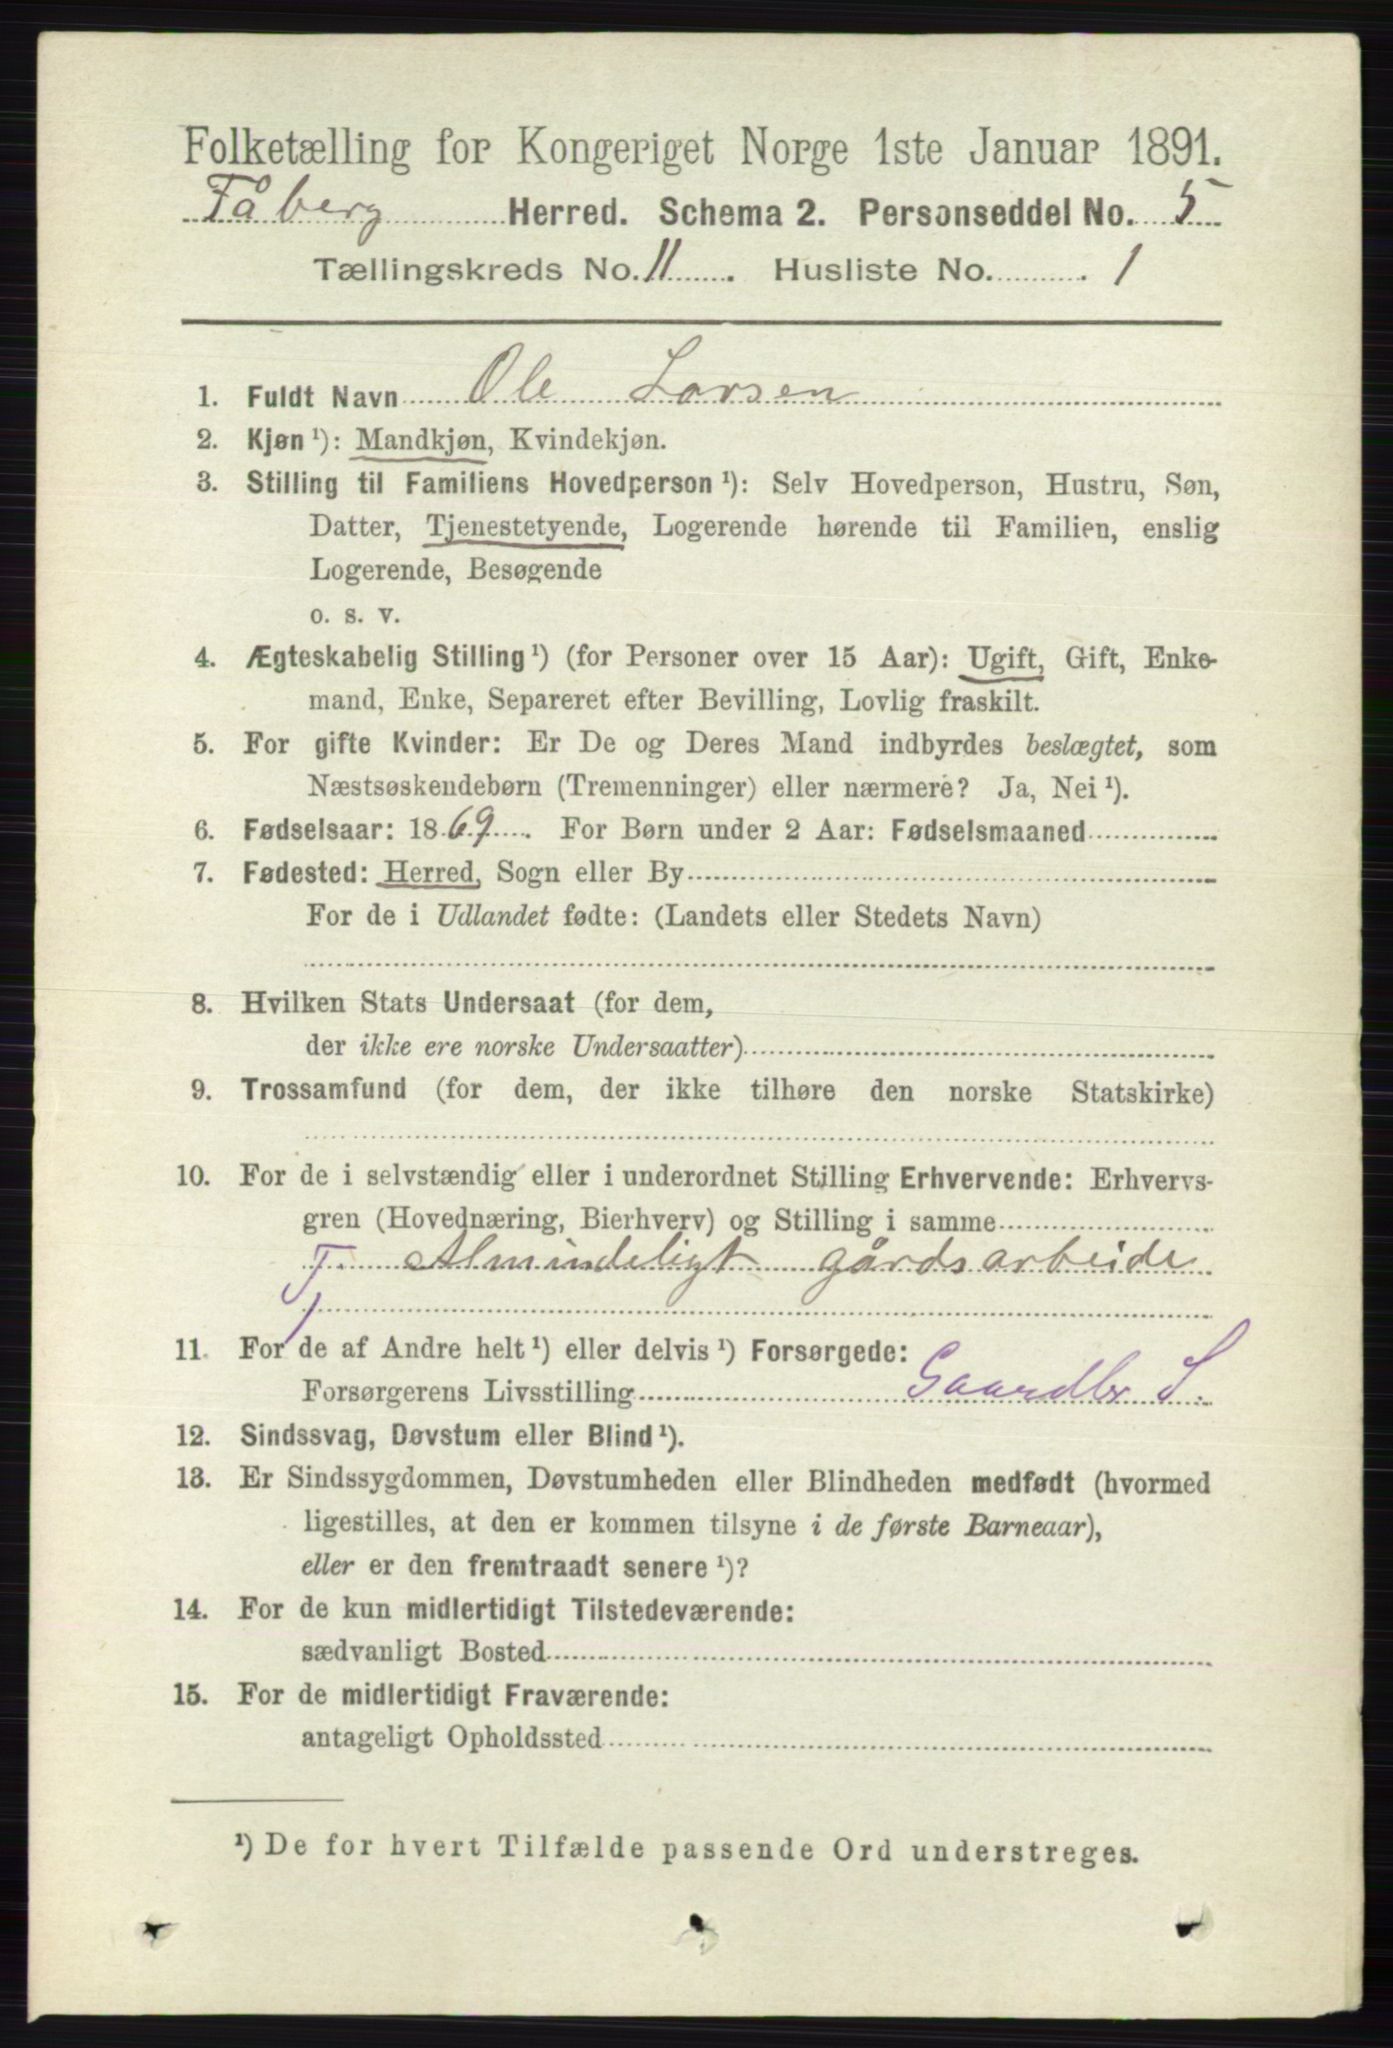 Folketælling for Kongeriget Norge 1ste Januar 1891.
Fåberg Herred. Schema 2. Personseddel No. 5
Tællingskreds No. 11. Husliste No. 1
1. Fuldt Navn Ole Larsen
2. Kjøn ¹): Mandkjøn, Kvindekjøn.
3. Stilling til Familiens Hovedperson ¹): Selv Hovedperson, Hustru, Søn,
Datter, Tjenestetyende, Logerende hørende til Familien, enslig
Logerende, Besøgende
o. s. v.
4. Ægteskabelig Stilling ¹) (for Personer over 15 Aar): Ugift, Gift, Enke-
mand, Enke, Separeret efter Bevilling, Lovlig fraskilt.
5. For gifte Kvinder: Er De og Deres Mand indbyrdes beslægtet, som
Næstsøskendebørn (Tremenninger) eller nærmere? Ja, Nei ¹).
6. Fødselsaar: 1869. For Børn under 2 Aar: Fødselsmaaned
7. Fødested: Herred, Sogn eller By
For de i Udlandet fødte: (Landets eller Stedets Navn)
8. Hvilken Stats Undersaat (for dem,
der ikke ere norske Undersaatter)
9. Trossamfund (for dem, der ikke tilhøre den norske Statskirke)
10. For de i selvstændig eller i underordnet Stilling Erhvervende: Erhvervs-
gren (Hovednæring, Bierhverv) og Stilling i samme
Tj Almindeligt gårdsarbeide
11. For de af Andre helt ¹) eller delvis ¹) Forsørgede:
Forsørgerens Livsstilling Gaardbr S.
12. Sindssvag, Døvstum eller Blind ¹).
13. Er Sindssygdommen, Døvstumheden eller Blindheden medfødt (hvormed
ligestilles, at den er kommen tilsyne i de første Barneaar),
eller er den fremtraadt senere ¹)?
14. For de kun midlertidigt Tilstedeværende:
sædvanligt Bosted
15. For de midlertidigt Fraværende:
antageligt Opholdssted
¹) De for hvert Tilfælde passende Ord understreges.